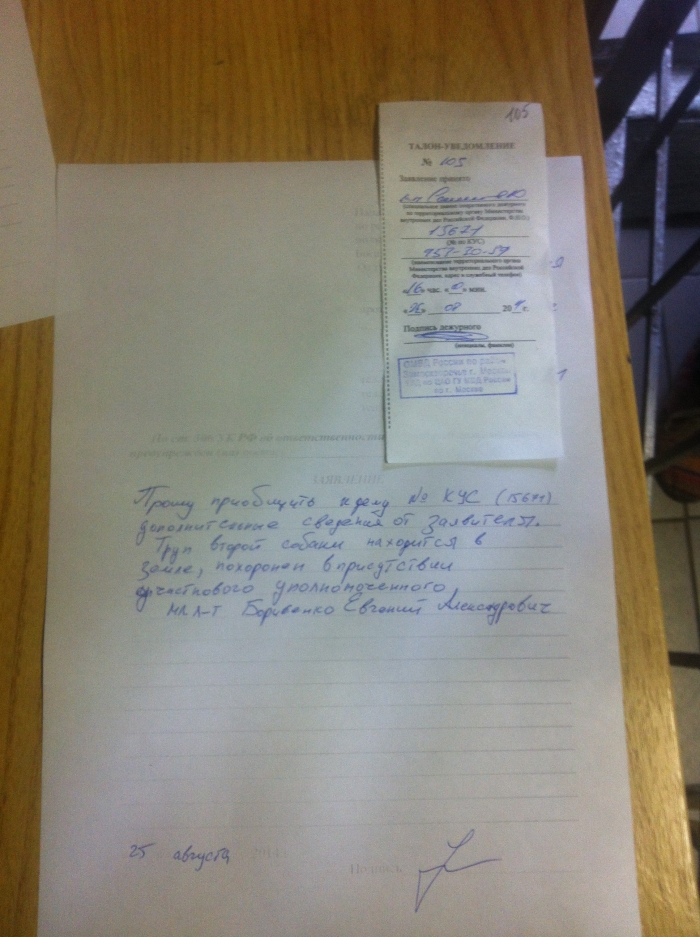 105
ТАЛОН-УВЕДОМЛЕНИЕ
№ 105
Заявление принято
(специальное звание оперативного дежурного
по территориальному органу Министерства
внутренних дел Российской Федерации, Ф.И.О.)
15671
(№ по КУС)
951-20-59
(наименование территориального органа
Министерства внутренних дел Российской
Федерации, адрес и служебный телефон)
«16» час. «0» мин.
08 20 г.
Подпись дежурного
(инициалы, фамилия)
ОМВД России по району
Замоскворечье г. Москвы
УВД по ЦАО ГУ МВД России
по г. Москве
По ст. 306 УК РФ об ответственности
предупрежден
ЗАЯВЛЕНИЕ
Прошу приобщить к делу № КУС (15671)
дополнительные сведения от заявителя.
Труп второй собаки находится в
земле, похоронен в присутствии
участкового уполномоченного
мл л-т Евгений Александрович
25 августа 2014
Подпись